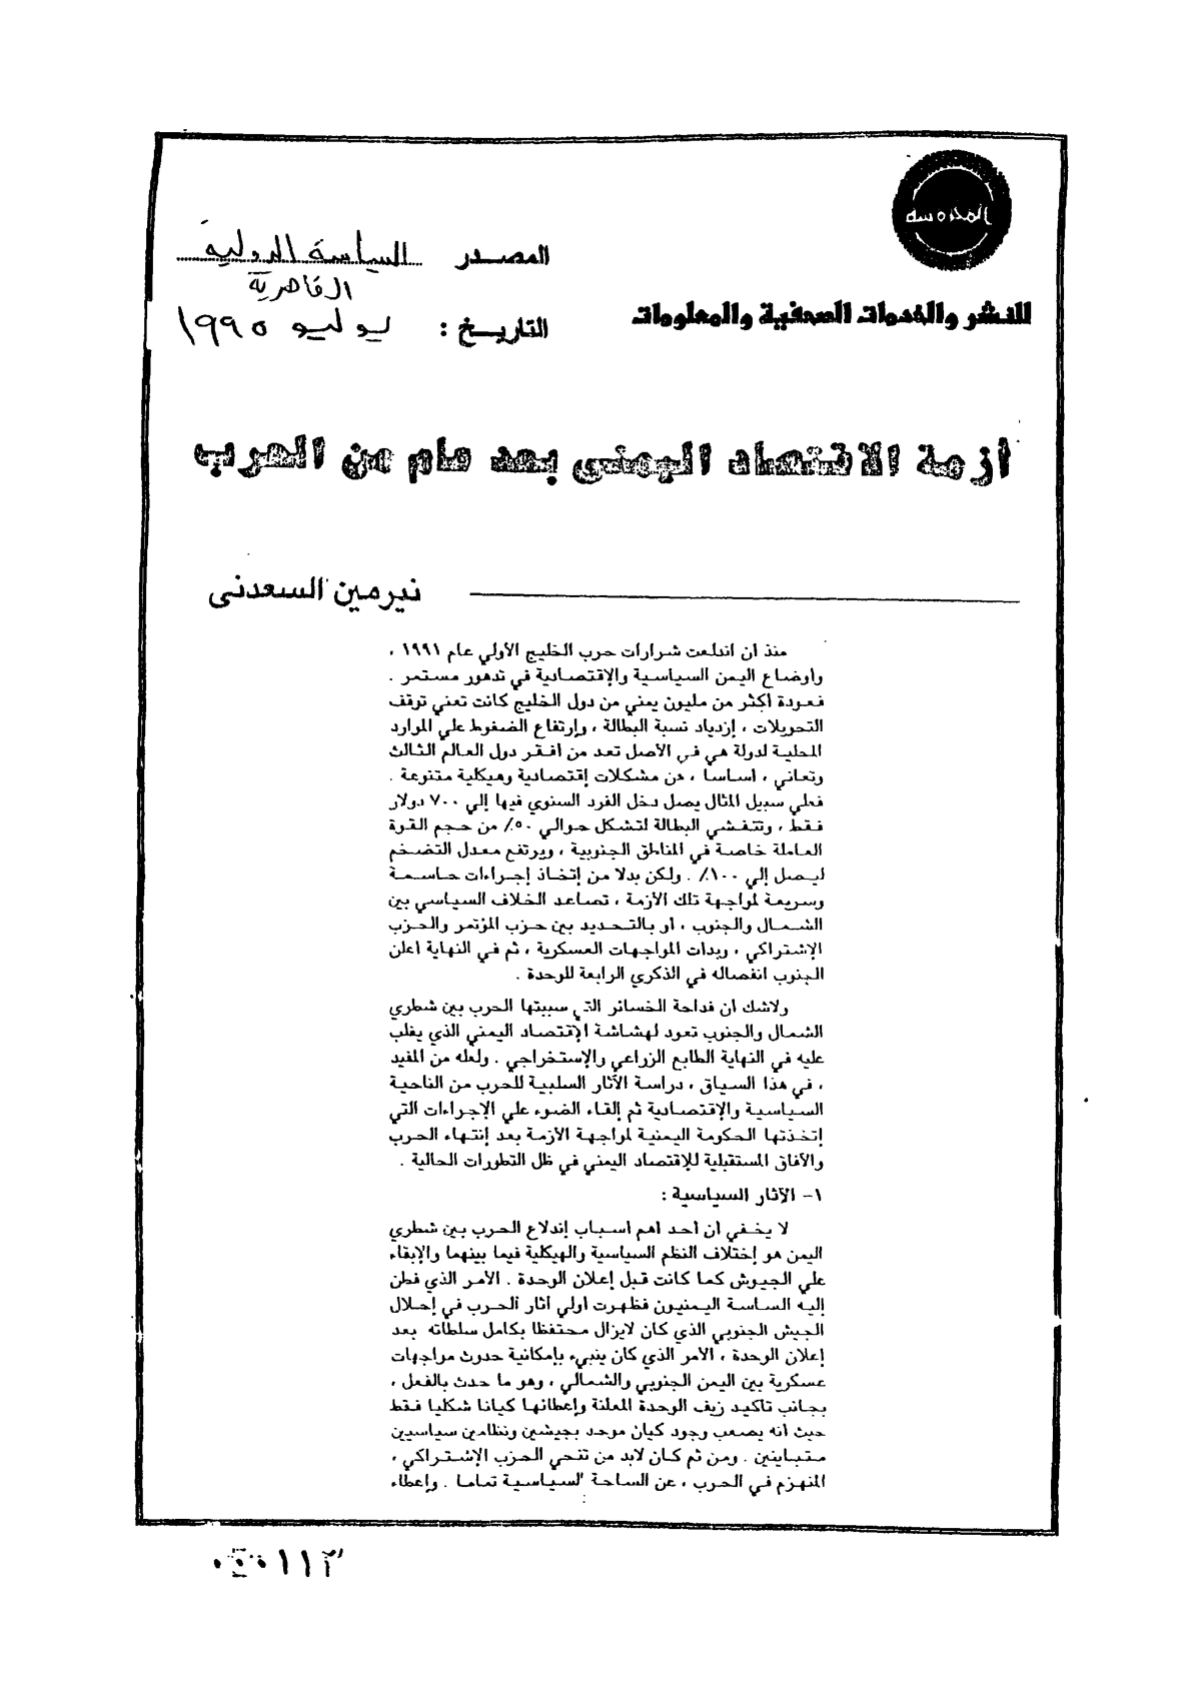 المحروسة
للنشر والخدمات الصحفية والمعلومات
المصدر السياسة الدولية
القاهرية
التاريخ : يوليو ١٩٩٥
أزمة الاقتصاد اليمنى بعد عام من الحرب
نيرمين السعدنى
منذ ان اندلعت شرارات حرب الخليج الأولي عام ١٩٩١ ،
وأوضاع اليمن السياسية والإقتصادية في تدهور مستمر .
فعودة أكثر من مليون يمني من دول الخليج كانت تعني توقف
التحويلات ، إزدياد نسبة البطالة ، وإرتفاع الضغوط علي الموارد
المحلية لدولة هي في الأصل تعد من افقر دول العالم الثالث
وتعاني ، اساسا ، من مشكلات إقتصادية وهيكلية متنوعة .
فعلي سبيل المثال يصل دخل الفرد السنوي فيها إلي ٧٠٠ دولار
فقط ، وتتفشي البطالة لتشكل حوالي ٥٠٪ من حجم القوة
العاملة خاصة في المناطق الجنوبية ، ويرتفع معدل التضخم
ليصل إلي ١٠٠٪ . ولكن بدلا من إتخاذ إجراءات حاسمة
وسريعة لمواجهة تلك الأزمة ، تصاعد الخلاف السياسي بين
الشمال والجنوب ، أو بالتحديد بين حزب المؤتمر والحزب
الإشتراكي ، وبدات المواجهات العسكرية ، ثم في النهاية أعلن
الجنوب انفصاله في الذكري الرابعة للوحدة .
ولاشك ان فداحة الخسائر التي سببتها الحرب بين شطري
الشمال والجنوب تعود لهشاشة الإقتصاد اليمني الذي يغلب
عليه في النهاية الطابع الزراعي والإستخراجي . ولعله من المفيد
، في هذا السياق ، دراسة الآثار السلبية للحرب من الناحية
السياسية والإقتصادية ثم إلقاء الضوء علي الإجراءات التي
إتخذتها الحكومة اليمنية لمواجهة الأزمة بعد إنتهاء الحرب
والآفاق المستقبلية للإقتصاد اليمني في ظل التطورات الحالية .
١- الآثار السياسية :
لا يخفي أن أحد اهم اسباب إندلاع الحرب بين شطري
اليمن هو إختلاف النظم السياسية والهيكلية فيما بينهما والإبقاء
علي الجيوش كما كانت قبل إعلان الوحدة . الأمر الذي فطن
إليه الساسة اليمنيون فظهرت أولي آثار الحرب في إحلال
الجيش الجنوبي الذي كان لايزال محتفظا بكامل سلطاته بعد
إعلان الوحدة ، الأمر الذي كان ينبيء بإمكانية حدوث مواجهات
عسكرية بين اليمن الجنوبي والشمالي ، وهو ما حدث بالفعل ،
بجانب تاكيد زيف الوحدة المعلنة وإعطانها كيانا شكليا فقط
حيث انه يصعب وجود كيان موحد بجيشين ونظامين سياسيين
متباينين . ومن ثم كان لابد من تنحي الحزب الإشتراكي ،
المنهزم في الحرب ، عن الساحة السياسية تماما . وإعطاء